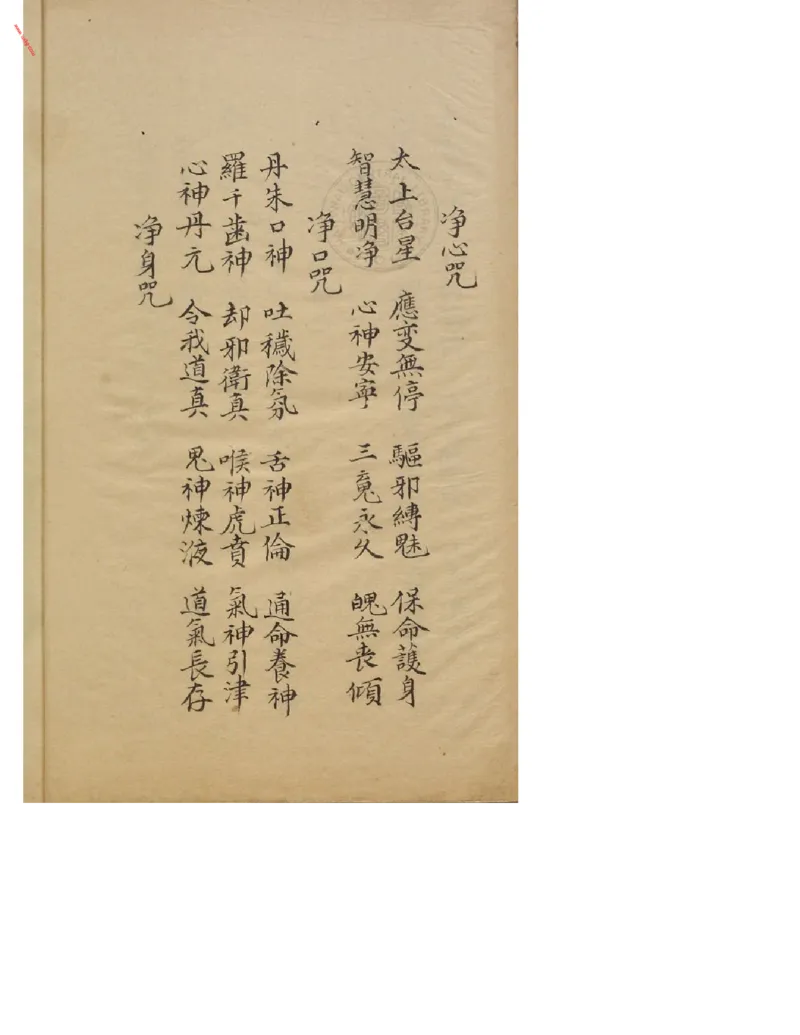 净心咒
太上台星 應变無停 驅邪縛魅 保命護身
智慧明净 心神安寧 三魂永久 魄無丧傾
净口咒
丹朱口神 吐穢除氛 舌神正倫 通命養神
羅千齒神 却邪衛真 喉神虎賁 氣神引津
心神丹元 令我道真 思神煉液 道氣長存
净身咒